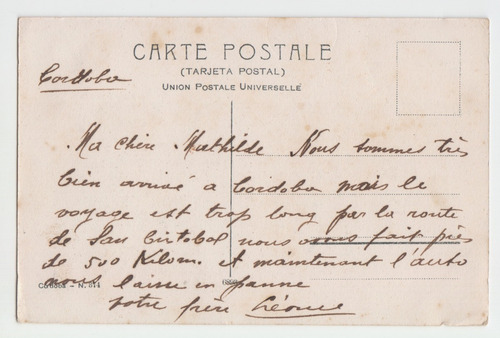 CARTE POSTALE
(TARJETA POSTAL)
UNION POSTALE UNIVERSELLE
Cordoba
Ma chère Mathilde Nous sommes très
bien arrivé a Cordoba mais le
voyage est trop long par la route
de San Cirtobal nous avons fait près
de 500 Kilom. et maintenant l'auto
nous laisse en panne
votre frère Léonce